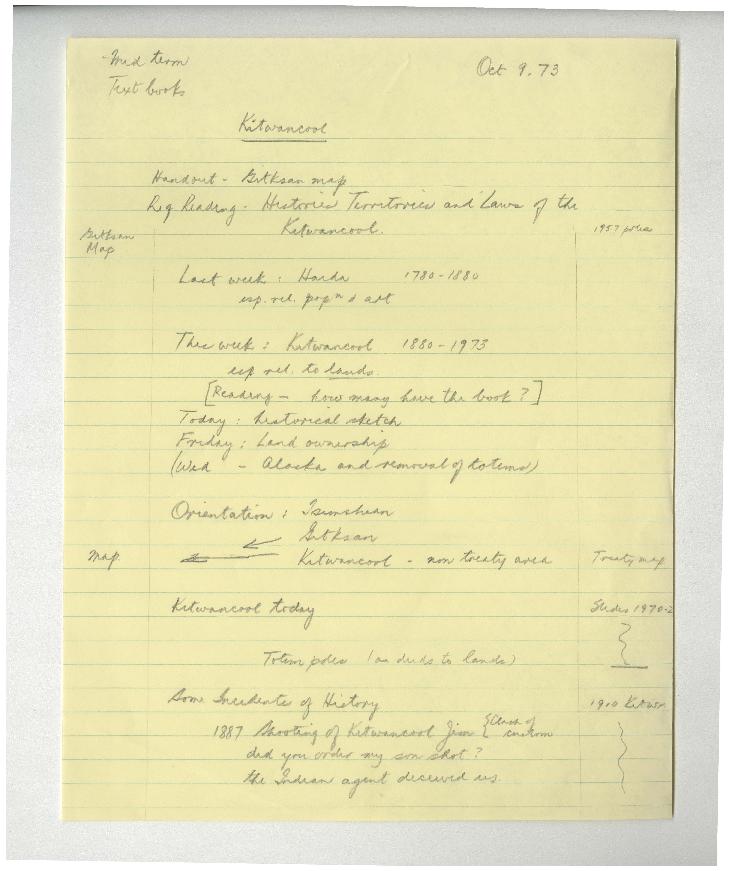 Mid term
Oct 9.73
Text books
Kitwancool
Handout - Gitksan map
Req Reading - Histories Territories and Laws of the
Kitwancool.
1957 poles
Gitksan
Map
Last week : Haida 1780-1880
esp. rel. popⁿ & art
This week : Kitwancool 1880-1973
esp rel. to lands.
[Reading - how many have the book?]
Today : historical sketch
Friday : Land ownership
(Wed - Alaska and removal of totems)
Orientation : Tsimshian
Gitksan
Map Kitwancool - non treaty area Treaty map
Kitwancool today Slides 1970-2
Totem poles (as deeds to lands)
Some Incidents of History 1910 Kitwan
1887 Shooting of Kitwancool Jim {Clash of
custom
did you order my son shot?
the Indian agent deceived us.